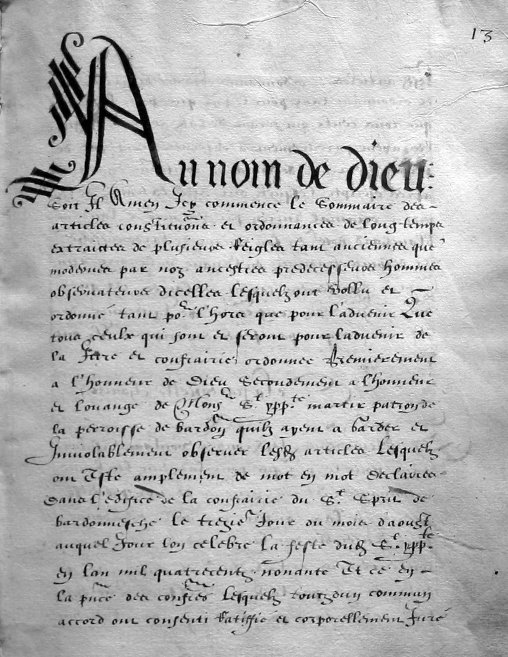 13
Au nom de dieu:
Soit Il Amen Icy commence le Sommaire des
articles constitutions et ordonnances de long temps
extraictes de plusieurs Reigles tant anciennes que
modernes par noz ancestres predecesseurs hommes
observateurs dicelles Lesquelz ont vollu et
ordonne tant por l'hors que pour l'advenir Que
tous ceulx qui sont et seront pour l'advenir de
la et confrairie ordonnee Premierement
a l'honneur de Dieu Secondement a l'honneur
et louange de Monsr St yppte martir patron de
la perroisse de bardon quilz ayent a Garder et
Inviolablement observer lesdz articles Lesquelz
ont Este amplement de mot en mot declaires
dans l'edifice de la confrairie du St Sprit de
bardonnesche le trezie Jour du mois d'aoust
auquel Jour lon celebre la feste dudz St yppte
en lan mil quatrecentz nonante Et ce en
la pnce des confres Lesquelz tout dun commun
accord ont consenti Ratiffie et corporellement Jure